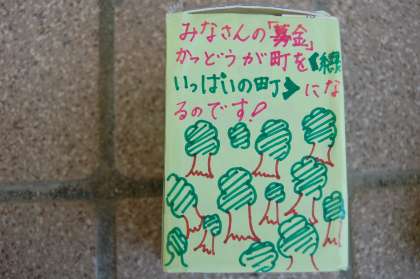 みなさんの「募金」
かつどうが町を《緑
いっぱいの町》にな
るのです！